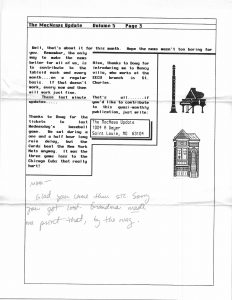 The MacNews Update Volume 5 Page 3
Well, that's about it for this month. Hope the news wasn't too boring for
you. Remember, the only
way to make the news
better for all of us, is
to contribute to the
tabloid each and every
month...on a regular
basis. If that doesn't
work, every now and then
will work just fine.
These last minute
updates
Thanks to Doug for the
tickets to last
Wednesday's baseball
game. We sat during a
one and a half hour long
rain delay, but the
Cards beat the New York
Mets anyway. It was the
three game loss to the
Chicago Cubs that really
hurt!
Also, thanks to Doug for
introducing me to Nancy
who works at the
branch in St.
Charles.
That's all if
you'd like to contribute
to this quasi-monthly
publication, just write:
The MacNews Update
1009 A Geyer
Saint Louis, MO 63104
Mom-
Glad you came thru. Sorry
you got lost. Grandma made
me print that, by the way.